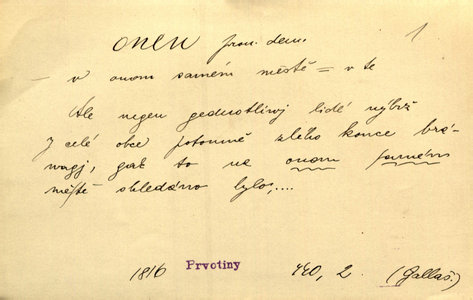 onen pron. dem. 1
– v onom samém městě = v te
Ale negen gednotliwj lidé nýbrž
y celé obce potomně zlého konce brá-
wagj, gak to na onom samém
městě shledáno bylo,....
1816 Prvotiny 440, 2. (Gallaš.)